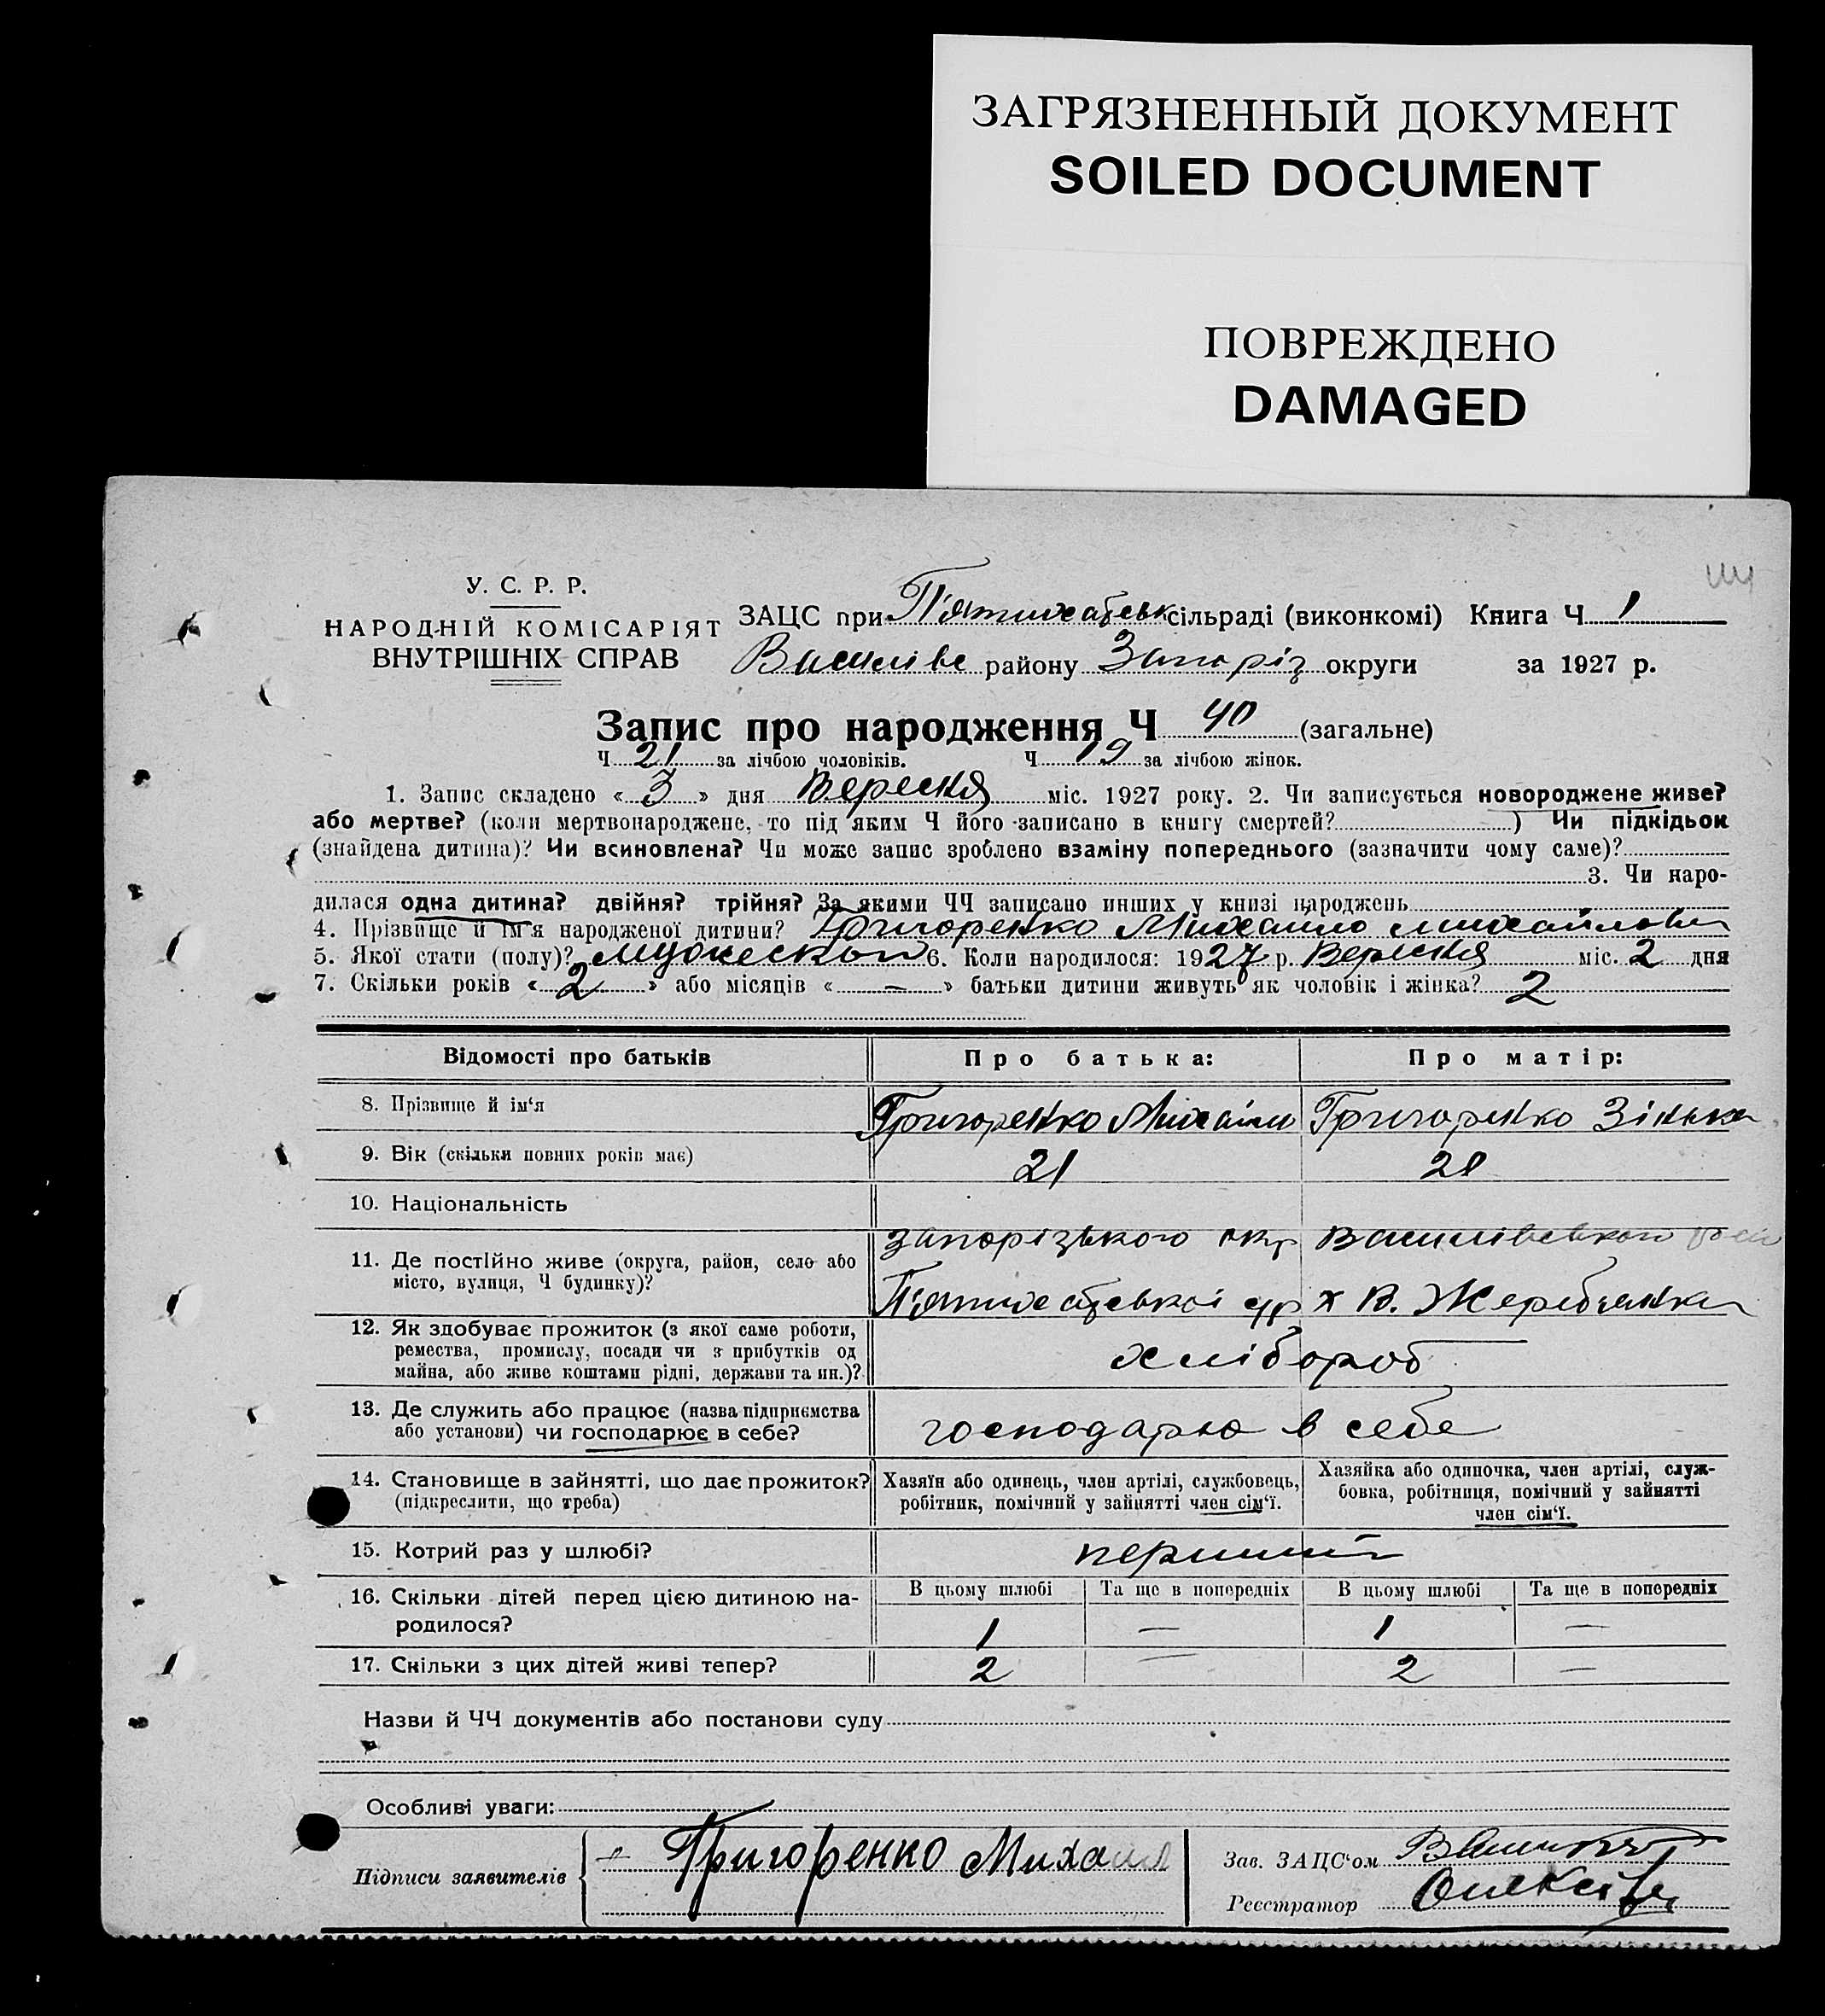 ЗАГРЯЗНЕННЫЙ ДОКУМЕНТ
SOILED DOCUMENT
ПОВРЕЖДЕНО
DAMAGED
У. С. Р. Р.
НАРОДНІЙ КОМІСАРІЯТ
ВНУТРІШНІХ СПРАВ
ЗАЦС при П'ятихатськ сільраді (виконкомі) Книга Ч 1
Василівс району Запоріз округи за 1927 р.
Запис про народження Ч 40 (загальне)
Ч 21 за лічбою чоловіків. Ч 19 за лічбою жінок.
1. Запис складено « 3 » дня Вересня міс. 1927 року. 2. Чи записується новороджене живе?
або мертве? (коли мертвонароджене, то під яким Ч його записано в книгу смертей? ) Чи підкідьок
(знайдена дитина)? Чи всиновлена? Чи може запис зроблено взаміну попереднього (зазначити чому саме)?
3. Чи наро-
дилася одна дитина? двійня? трійня? За якими ЧЧ записано инших у книзі народжень
4. Прізвище й ім'я народженої дитини? Григоренко Михайло Михайлович
5. Якої стати (полу)? мужеской 6. Коли народилося: 1927 р. Вересня міс. 2 дня
7. Скільки років « 2 » або місяців « — » батьки дитини живуть як чоловік і жінка? 2
Відомості про батьків Про батька: Про матір:
8. Прізвище й ім'я Григоренко Михайло Григоренко Зінька
9. Вік (скільки повних років має) 21 20
10. Національність
11. Де постійно живе (округа, район, село або місто, вулиця, Ч будинку)?
Запорізького окр Василівського
П'ятихатської с/р х В. Жеребянка
12. Як здобуває прожиток (з якої саме роботи,
ремества, промислу, посади чи з прибутків од
майна, або живе коштами рідні, держави та ин.)? хлібороб
13. Де служить або працює (назва підприємства
або установи) чи господарює в себе? господарю в себе
14. Становище в зайнятті, що дає прожиток?
(підкреслити, що треба)
Хазяїн або одинець, член артілі, службовець,
робітник, помічний у зайнятті член сім'ї.
Хазяйка або одиночка, член артілі, служ-
бовка, робітниця, помічний у зайнятті
член сім'ї.
15. Котрий раз у шлюбі? перший
В цьому шлюбі Та ще в попередніх В цьому шлюбі Та ще в попередніх
16. Скільки дітей перед цією дитиною на-
родилося? 1 — 1 —
17. Скільки з цих дітей живі тепер? 2 — 2 —
Назви й ЧЧ документів або постанови суду
Особливі уваги:
Підписи заявителів Григоренко Михаил
Зав. ЗАЦС'ом
Реєстратор